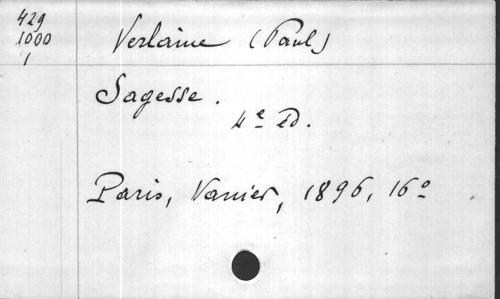 429
1000
1
Verlaine (Paul)
Sagesse.
4e Ed.
Paris, Vanier, 1896, 16o